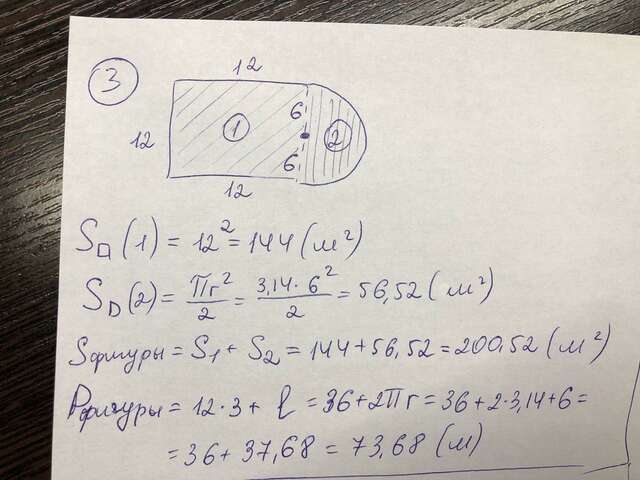 3
12
12
1
6
6
2
12
S□(1) = 12² = 144 (м²)
SD(2) = Пг²/2 = 3,14·6²/2 = 56,52 (м²)
Sфигуры = S₁ + S₂ = 144 + 56,52 = 200,52 (м²)
Pфигуры = 12·3 + l = 36 + 2Пг = 36 + 2·3,14+6 =
= 36 + 37,68 = 73,68 (м)